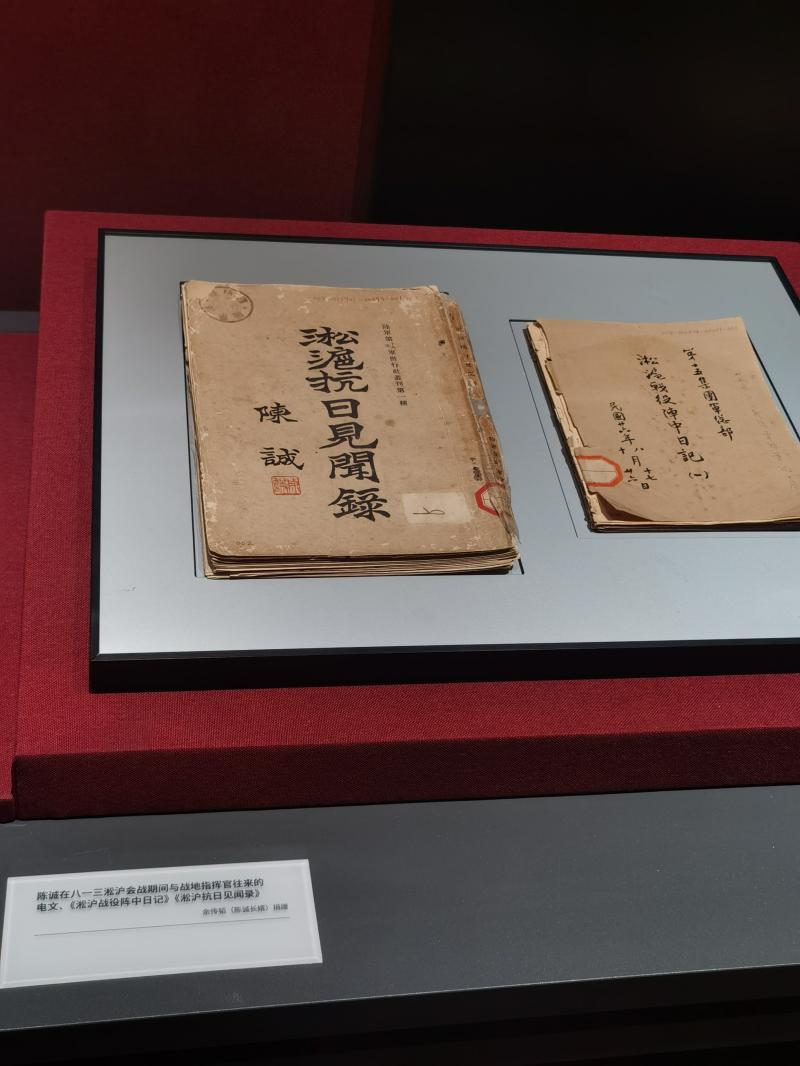 陸軍第十八軍偕行社叢刊第一種
淞滬抗日見聞錄
陳誠
002
第十五集團軍總部
淞滬戰役陣中日記(一)
民國廿六年八月十七日
十 廿六
陈诚在八一三淞沪会战期间与战地指挥官往来的
电文、《淞沪战役阵中日记》《淞沪抗日见闻录》
余传韬（陈诚长婿）捐赠